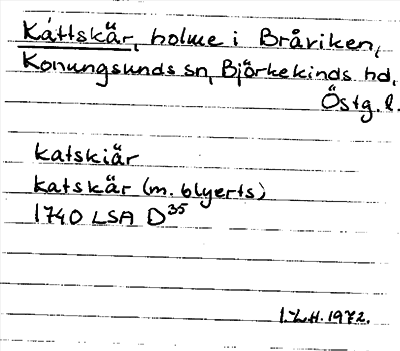 Kåttskär, holme i Bråviken,
Konungsunds sn, Björkekinds hd,
Östg. l.
katskiär
katskär (m. blyerts)
1740 LSA D35
I.L.H. 1972.